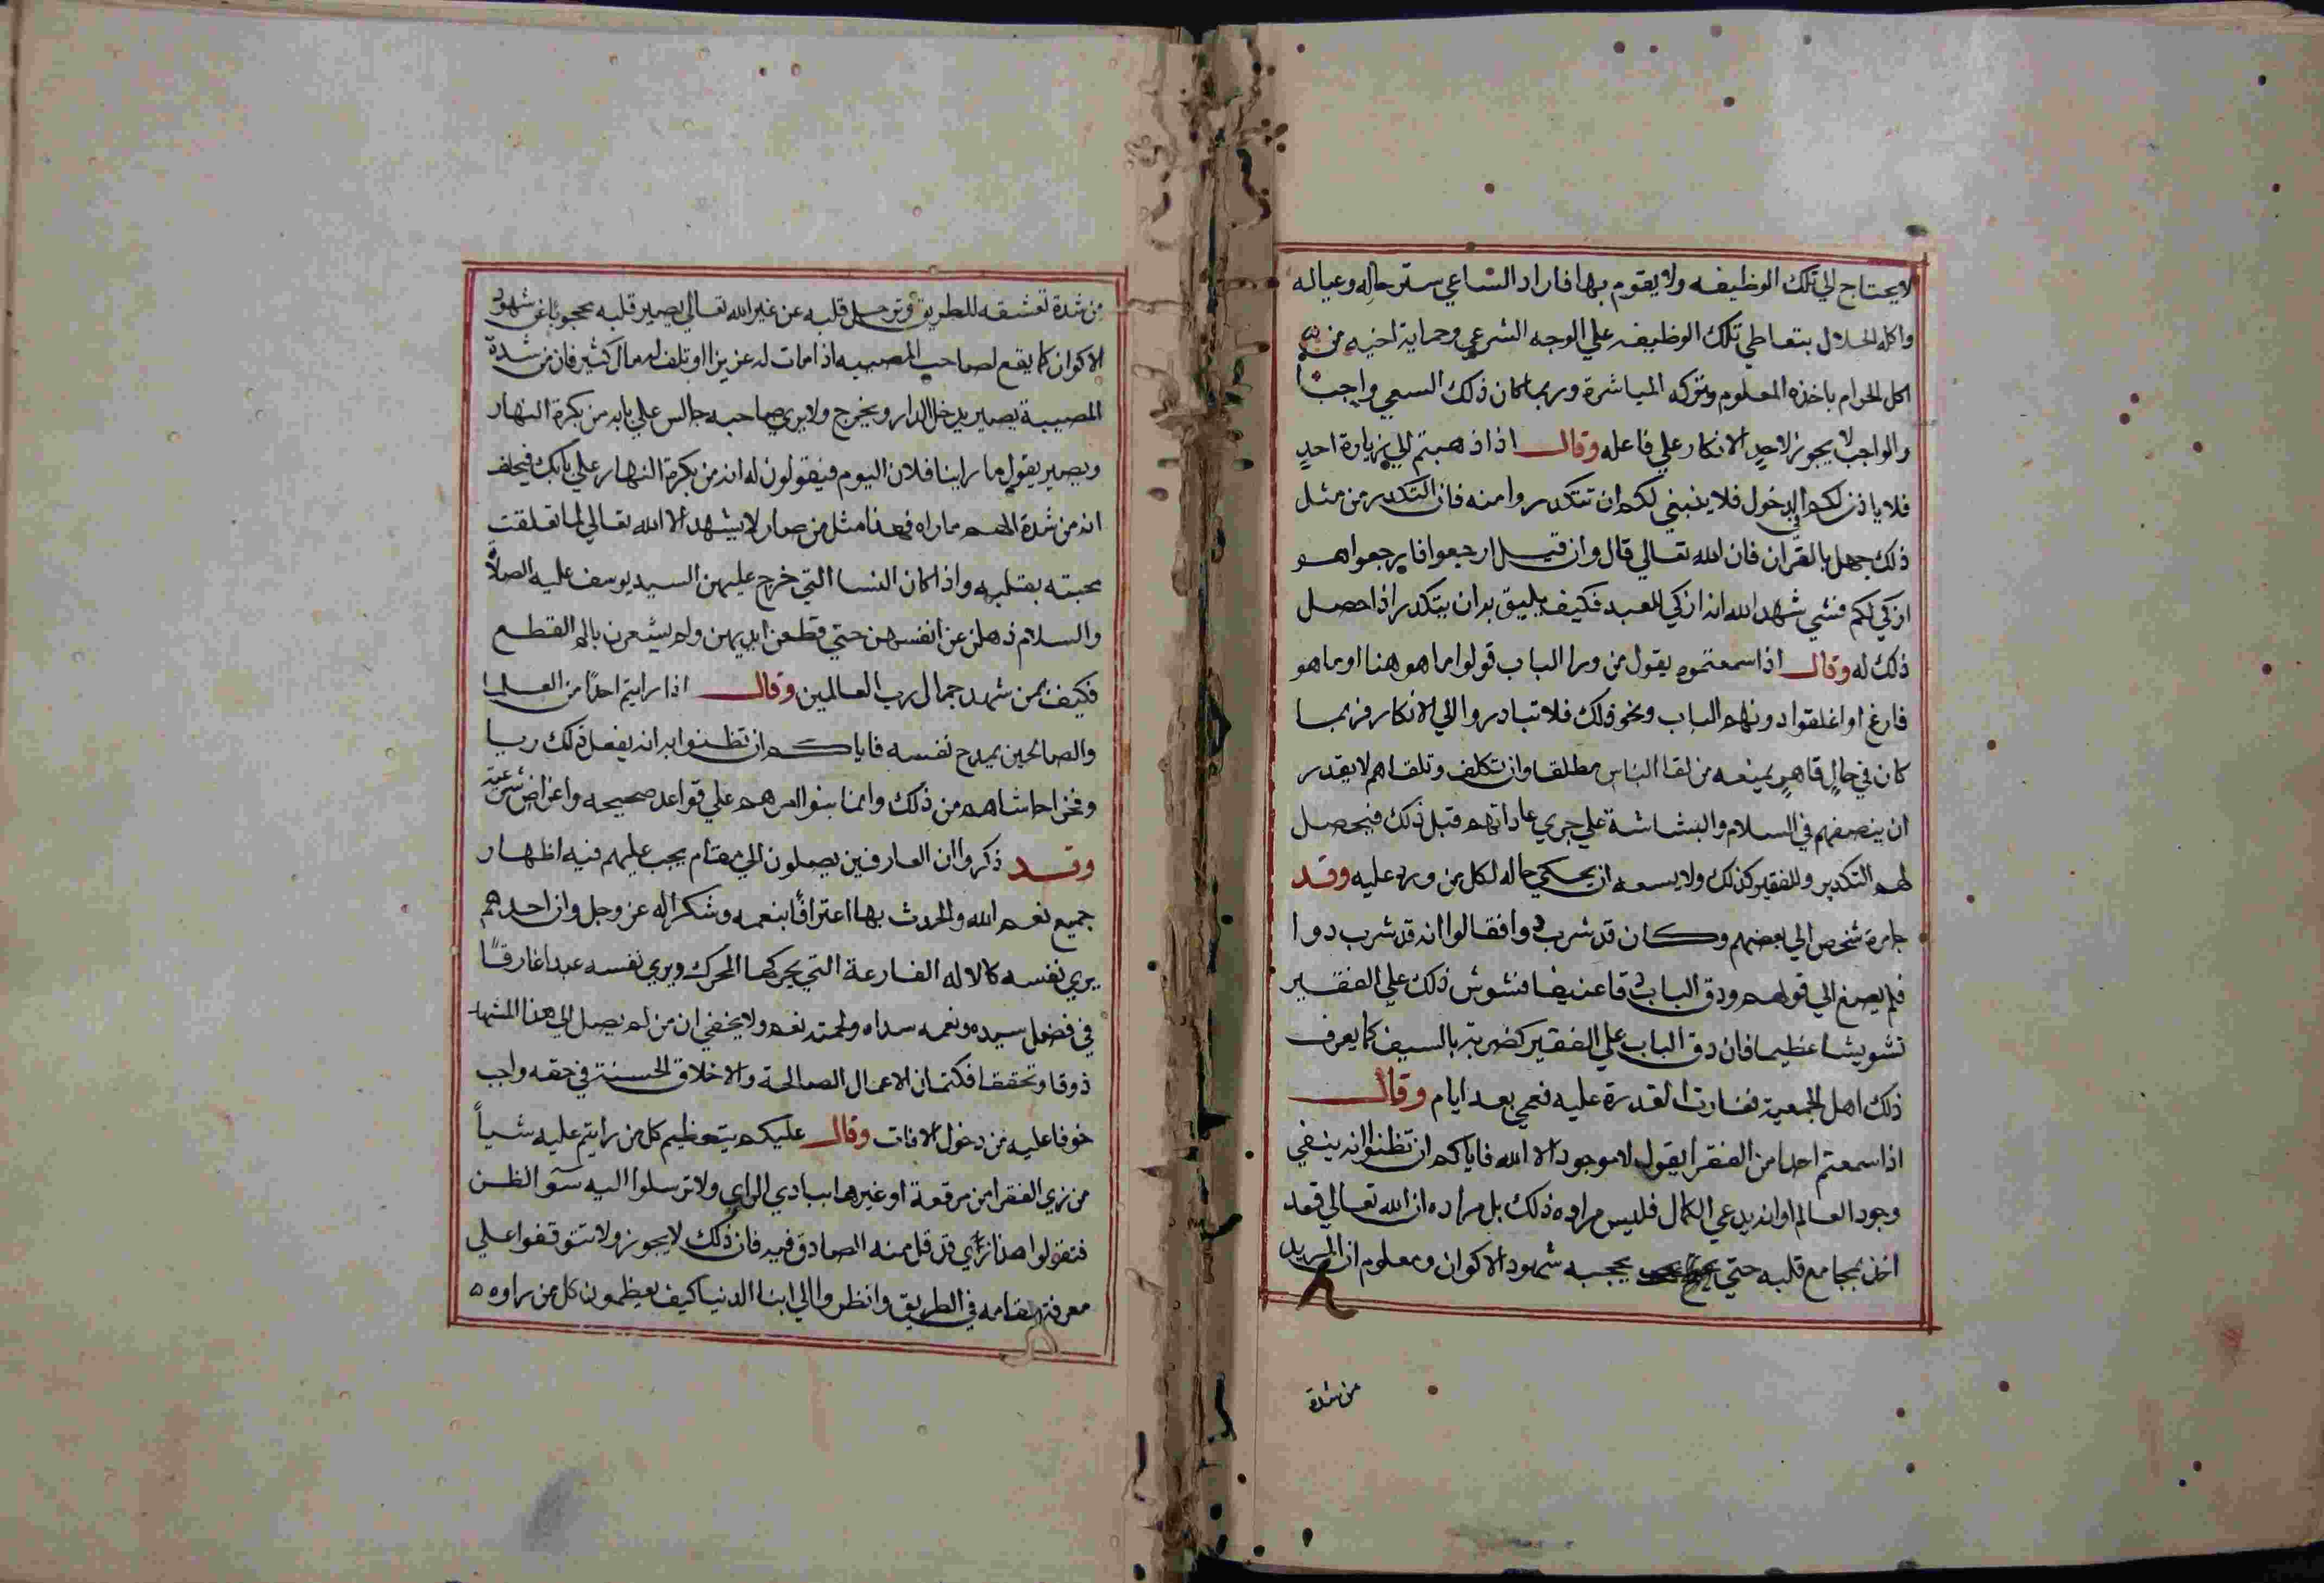 لا يحتاج الي تلك الوظيفه ولا يقوم بها فاراد الساعي ستر حاله وعياله
واكله الحلال بتعاطي تلك الوظيفه علي الوجه الشرعي وحماية اخيه من
اكل الحرام باخذه المعلوم وتركه المباشرة وربما كان ذلك السعي واجبا
والواجب لا يجوز لاحدٍ الانكار علي فاعله وقال اذا ذهبتم الي زيارة احدٍ
فلا ياذن لكم في الدخول فلا ينبغي لكم ان تتكدروا منه فان التكدر من مثل
ذلك جهل بالقرآن فان الله تعالي قال وان قيل ارجعوا فارجعوا هو
ازكي لكم فشي شهد الله انه ازكي للعبد فكيف يليق به ان يتكدر اذا حصل
ذلك له وقال اذا سمعتموه يقول من ورا الباب قولوا ما هو هنا او ما هو
فارغ او اغلقوا دونهم الباب ونحو ذلك فلا تبادروا الي الانكار فربما
كان في حالٍ قاهرٍ يمنعه من لقا الناس مطلقا وان تكلف وتلقاهم لا يقدر
ان ينصفهم في السلام والبشاشة علي جري عاداتهم قبل ذلك فيحصل
لهم التكدير وللفقير كذلك ولا يسعه ان يحكي حاله لكل من ورد عليه وقد
جا مرة شخص الي بعضهم وكان قد شرب دوا فقالوا انه قد شرب دوا
فلم يصغ الي قولهم ودق الباب دقا عنيفا فشوش ذلك علي الفقير
تشويشا عظيما فان دق الباب علي الفقير كضربته بالسيف كما يعرف
ذلك اهل الجمعية فغارت القدرة عليه فعمي بعد ايام وقال
اذا سمعتم احدا من الفقرا يقول لا موجود الا الله فاياكم ان تظنوا انه ينفي
وجود العالم او انه يدعي الكمال فليس مراده ذلك بل مراده ان الله تعالي قد
اخذ بمجامع قلبه حتي يحجبه شهود الاكوان ومعلوم ان المريد
من شدة
من شدة تعشقه للطريق وترحل قلبه عن غير الله تعالي يصير قلبه محجوبًا عن شهود
الاكوان كما يقع لصاحب المصيبه اذا مات له عزيز او تلف له مال كثير فان من شدة
المصيبة يصير يدخل الدار ويخرج ولا يري صاحبه جالس علي بابه من بكرة النهار
ويصير يقول ما راينا فلان اليوم فيقولون له انه من بكرة النهار علي بابك فيحلف
انه من شدة الهم ما راه فهذا مثل من صار لا يشهد الا الله تعالي لما تعلقت
محبته بقلبه واذا كان النسا التي خرج عليهن السيد يوسف عليه الصلاة
والسلام ذهلن عن انفسهن حتي قطعن ايديهن ولم يشعرن بالم القطع
فكيف بمن شهد جمال رب العالمين وقال اذا رايتم احدًا من العلما
والصالحين يمدح نفسه فاياكم ان تظنوا به انه يفعل ذلك ريا
وفخرا حاشاهم من ذلك وانما بنوا امرهم علي قواعد صحيحه واغراض شرعية
وقد ذكروا ان العارفين يصلون الي مقام يجب عليهم فيه اظهار
جميع نعم الله والحدث بها اعترافًا بنعمه وشكرا له عز وجل وان احدهم
يري نفسه كالاله الفارغة التي يحركها المحرك ويري نفسه عبدا غارقًا
في فضل سيده ونعمه سداه ولحمته نعم ولا يخفي ان من لم يصل الي هذا المشهد
ذوقا وتحققا فكتمان الاعمال الصالحة والاخلاق الحسنة في حقه واجب
خوفا عليه من دخول الافات وقال عليكم بتعظيم كل من رايتم عليه شيأً
من زي الفقرا من مرقعة او غيرها ببادي الراي ولا ترسلوا اليه سو الظن
فتقولوا هذا زي قد قل منه الصادق فيه فان ذلك لا يجوز ولا تتوقفوا علي
معرفة مقامه في الطريق وانظروا الي ابنا الدنيا كيف يعظمون كل من راوه ٥